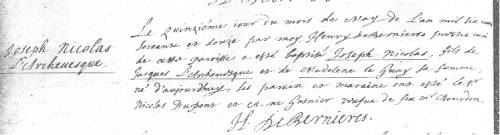 Joseph Nicolas
L'Archeuesque.
Le quinzieme iour du mois de May de L'an mil six cens
soixante et douze par moy Henry de Bernieres prestre curé
de cette paroisse a esté baptisé Joseph Nicolas, fils de
Jacques L'Archeuesque et de Madelene le Guay sa femme
né d'aujourdhuy, les parein et maraine ont esté le Sr
Nicolas Dupont et de feu Mr Bourdon.
H. De Bernieres.